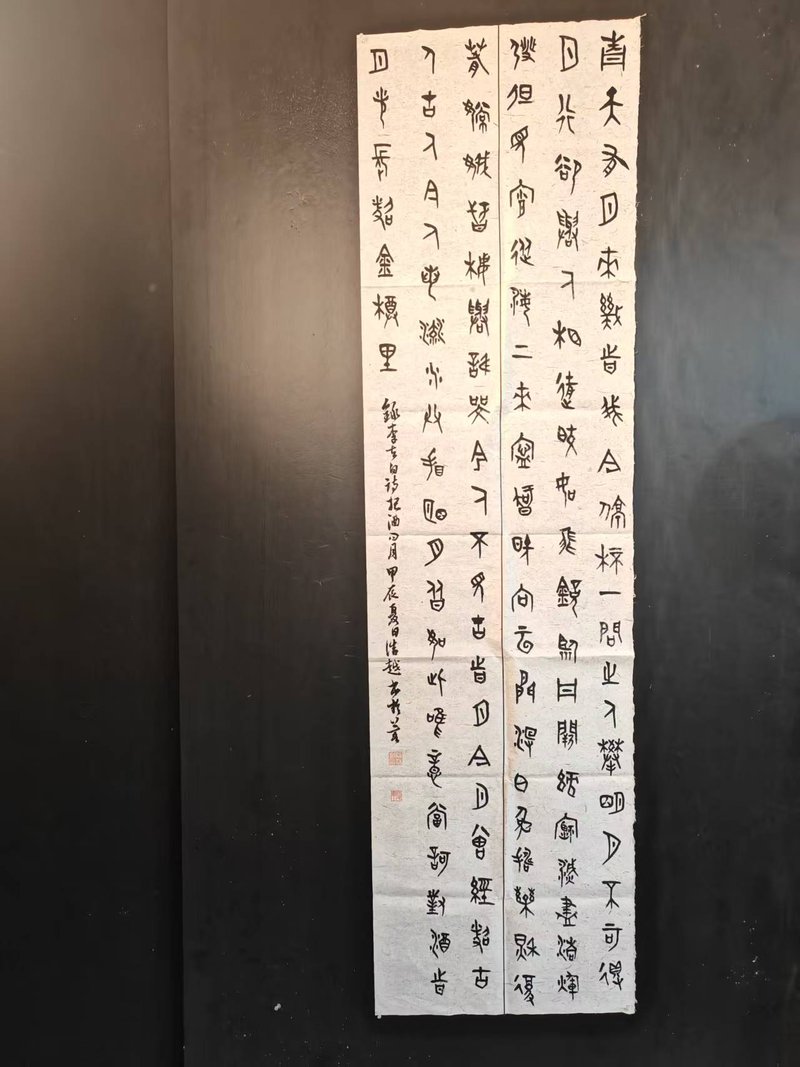 青天有月來幾時我今停杯一問之人攀明月不可得
月行卻與人相隨皎如飛鏡臨丹闕綠煙滅盡清輝
發但見宵從海上來寧知曉向雲間沒白兔搗藥秋復
春嫦娥孤棲與誰鄰今人不見古時月今月曾經照古
人古人今人若流水共看明月皆如此唯願當歌對酒時
月光長照金樽里
錄李太白詩把酒问月甲辰夏日浩越書於